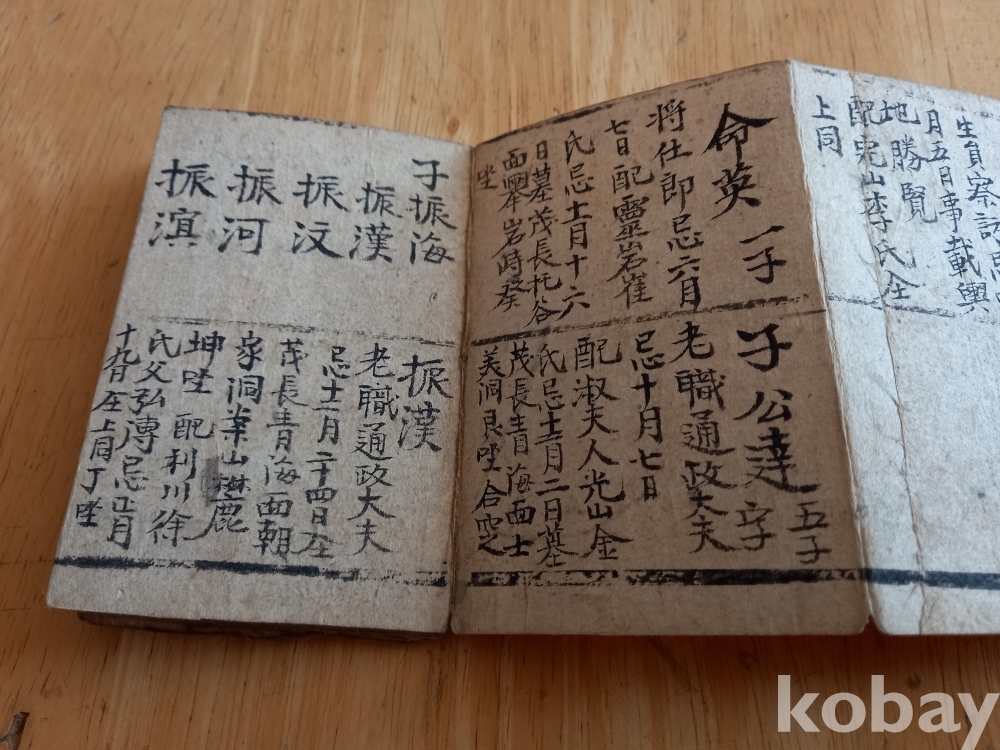 生員察訪忌
月五日事載輿
地勝覽
配完山李氏全
上同
命英 一子
将仕郎忌六月
七日配靈岩崔
氏忌十二月十六
日墓茂長托谷
面輂岩酉時癸
坐
子公達字
五子
老職通政大夫
忌十月七日
配淑夫人光山金
氏忌十二月二日墓
茂長靑海面士
美洞艮坐合窆
子振海
振漢
振汶
振河
振濵
振漢
老職通政大夫
忌十二月二十四日全
茂長靑海面朝
家洞業山楙麓
坤坐 配利川徐
氏父弘溥忌正月
十九日全上同丁坐
kobay